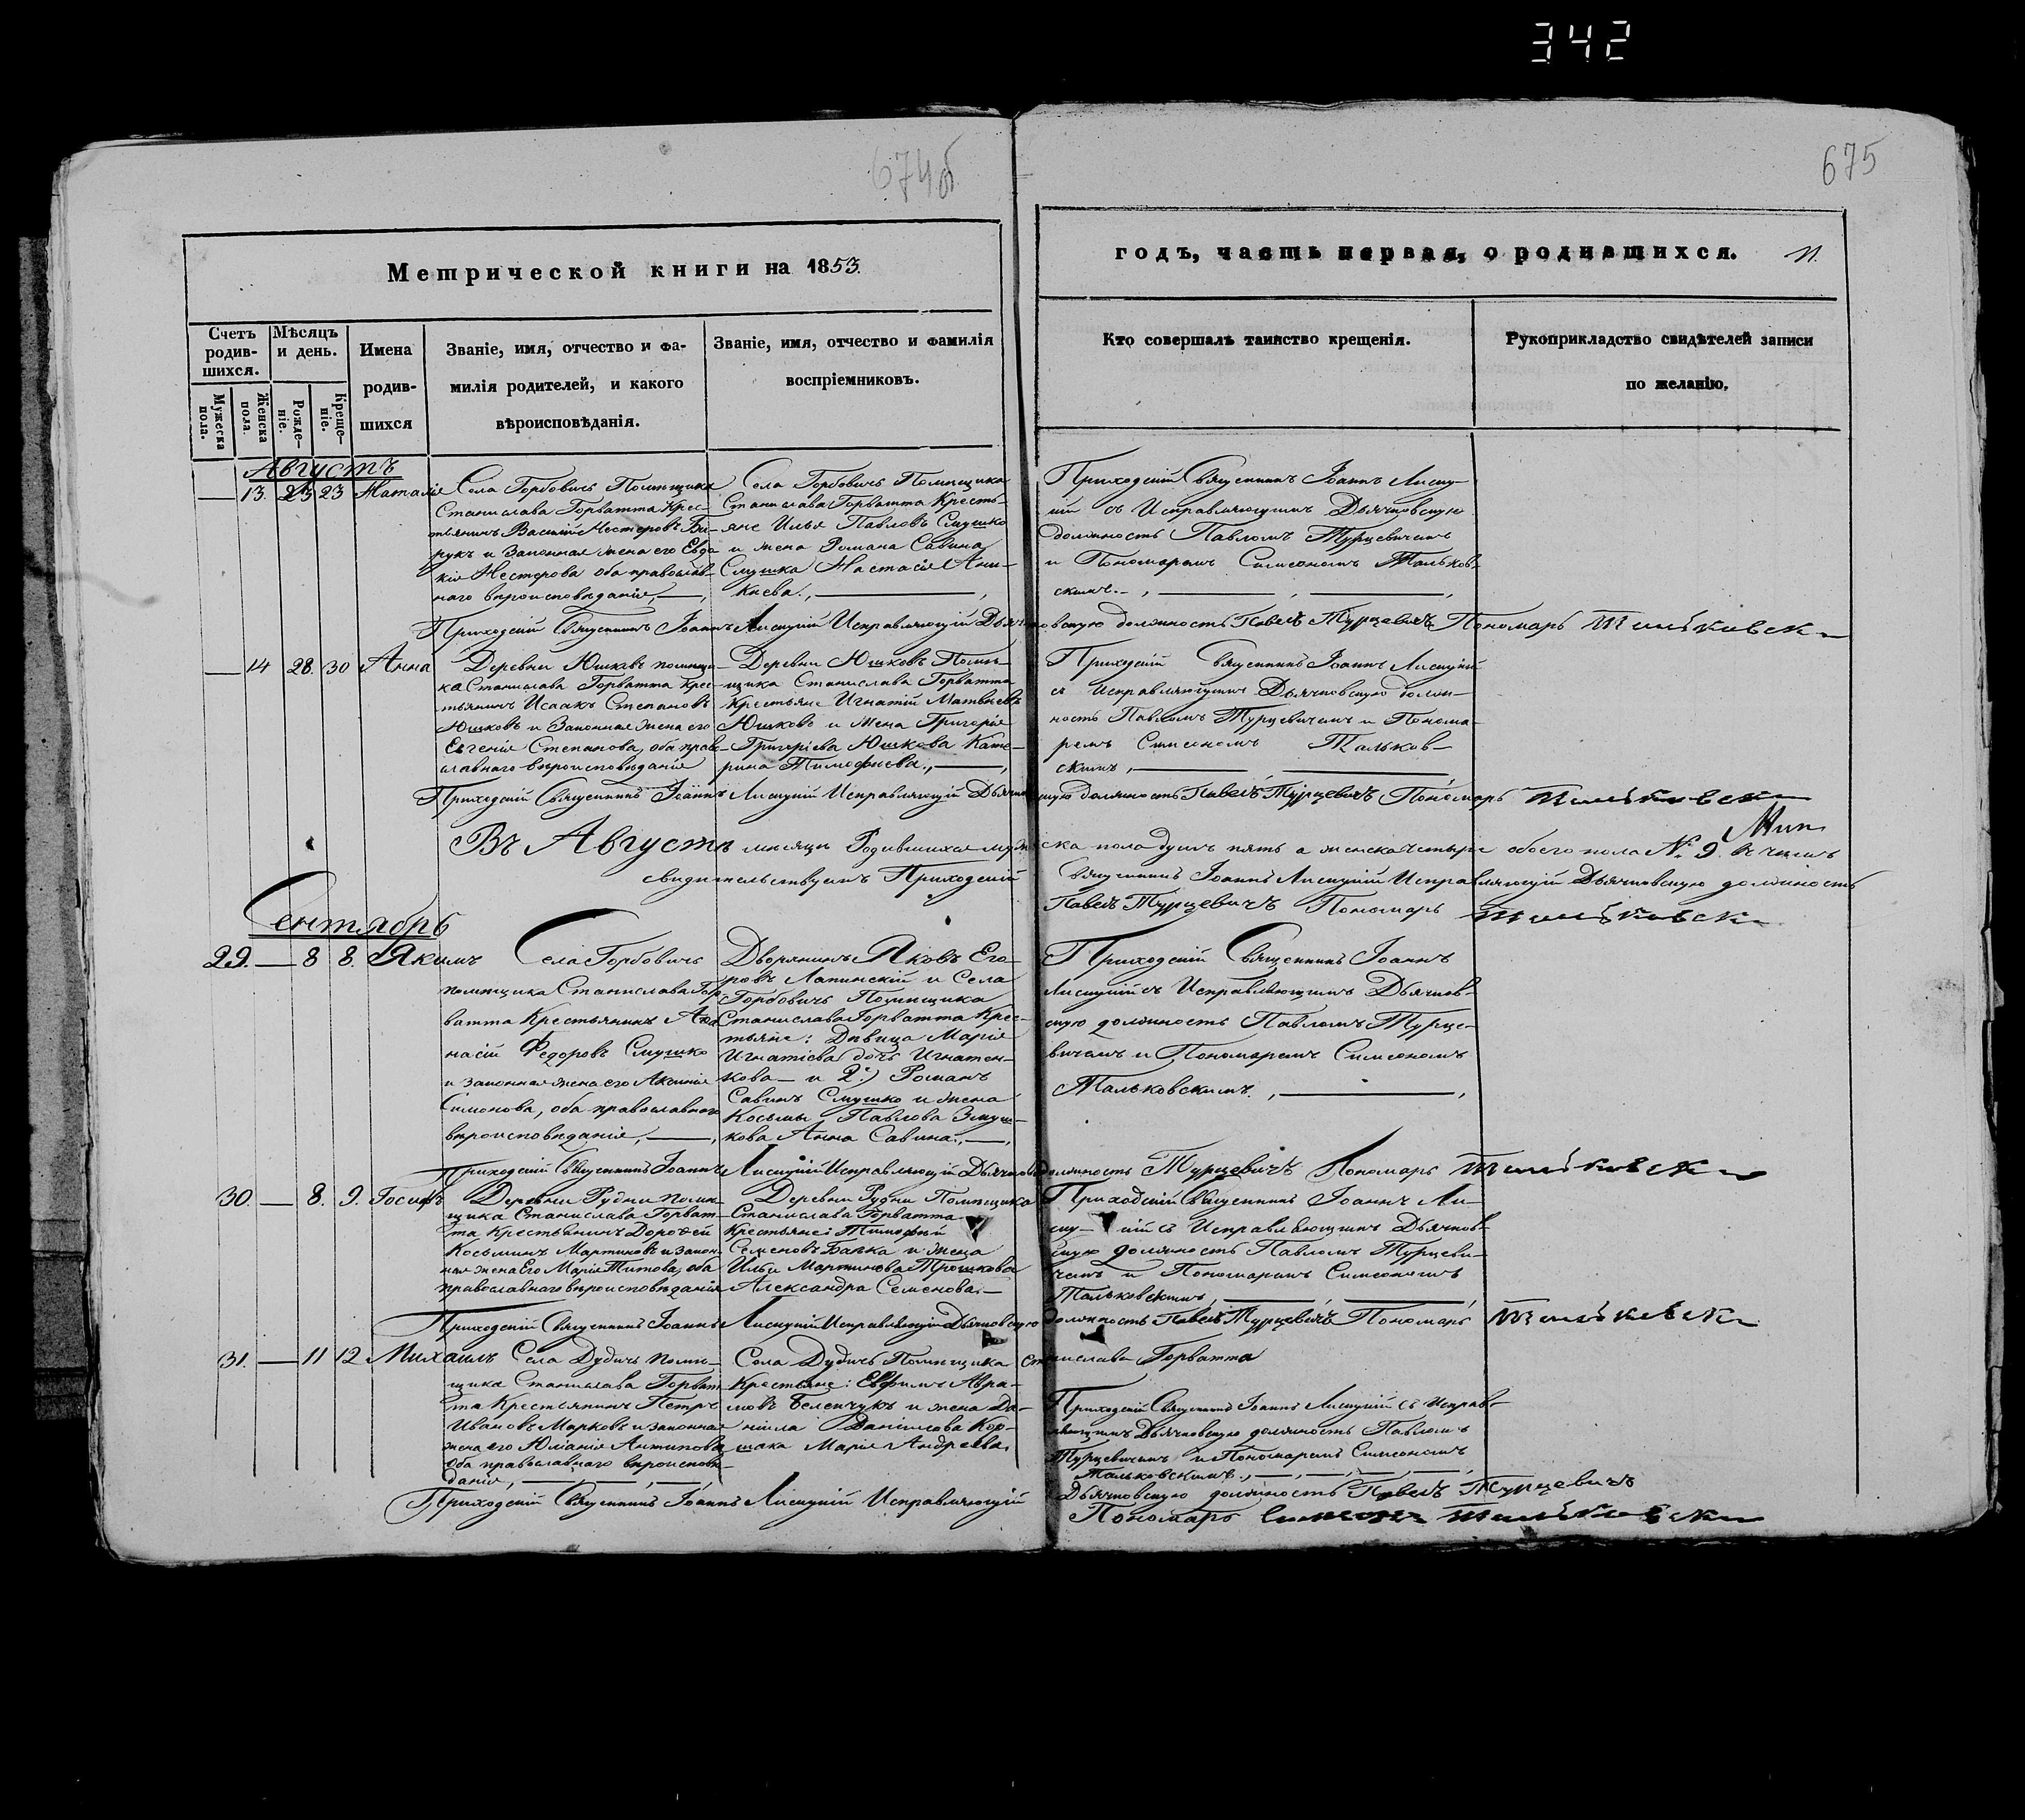 342
674об
675
Метрической книги на 1853.
годъ, часть первая, о родившихся.
11.
Счетъ родив-шихся.
Мѣсяцъ и день.
Имена родив-шихся
Званіе, имя, отчество и фа-
милія родителей, и какого
вѣроисповѣданія.
Званіе, имя, отчество и фамилія
воспріемниковъ.
Кто совершалъ таинство крещенія.
Рукоприкладство свидѣтелей записи
по желанію.
Мужеска пола.
Женска пола.
Рожде-ніе.
Креще-ніе.
Августъ
13. 23 23 Наталія
Села Горбовичъ Помѣщика
Станислава Горватта Крес-
тьянинъ Василій Нестеровъ Би-
рукъ и Законная жена его Евдо
кія Нестерова оба православ-
наго вѣроисповѣданія,
Села Горбовичъ Помѣщика
Станислава Горватта Кресть-
яне Илья Павловъ Смушко
и жена Романа Савина
Смушка Настасія Ани-
киева.,
Приходскій Священникъ Іоаннъ Лисиц-
кій съ Исправляющимъ Дьячковскую
должность Павломъ Турцевичемъ
и Пономаремъ Симеономъ Тальков-
скимъ.
Приходскій Священникъ Іоаннъ Лисицкій Исправляющій Дьячковскую должность Павелъ Турцевичъ Пономарь Тальковски
14 28. 30 Анна
Деревни Юшковъ помѣщи-
ка Станислава Горватта Крес-
тьянинъ Исаакъ Степановъ
Юшковъ и Законная жена его
Евгенія Степанова, оба право-
славнаго вѣроисповѣданія
Деревни Юшковъ Помѣ-
щика Станислава Горватта
Крестьяне Игнатій Матвѣевъ
Юшковъ и жена Григорія
Григоріева Юшкова Кате-
рина Тимофѣева.,
Приходскій Священникъ Іоаннъ Лисицкій
съ Исправляющимъ Дьячковскую долж-
ность Павломъ Турцевичемъ и Понома-
ремъ Симеономъ Тальков-
скимъ,
Приходскій Священникъ Іоаннъ Лисицкій Исправляющій Дьячковскую должность Павелъ Турцевичъ Пономарь Тальковски
Въ Августѣ мѣсяцѣ Родившихся мужеска пола душъ пять а женска четыре обоего пола № 9. въ чемъ
свидительствуемъ Приходскій Священникъ Іоаннъ Лисицкій Исправляющій Дьячковскую должность
Павелъ Турцевичъ Пономарь Тальковски
Сентябрь
29. 8 8. Якимъ
Села Горбовичъ
помѣщика Станислава Гор
ватта Крестьянинъ Афа
насій Федоровъ Смушко
и законная жена его Аксинія
Симонова, оба православнаго
вѣроисповѣданія,
Дворянинъ Яковъ Его-
ровъ Лапинскій и Села
Горбовичъ Помѣщика
Станислава Горватта Крес-
тьяне: Дѣвица Марія
Игнатіева дочь Игнатен-
кова и 2.) Романъ
Савинъ Смушко и жена
Косьмы Павлова Змуш-
кова Анна Савина.,
Приходскій Священникъ Іоаннъ
Лисицкій съ Исправляющимъ Дьячков-
скую должность Павломъ Турце-
вичемъ и Пономаремъ Симеономъ
Тальковскимъ.,
Приходскій Священникъ Іоаннъ Лисицкій Исправляющій Дьячковскую должность Турцевичъ Пономарь Тальковски
30. 8. 9. Іосифъ
Деревни Рудни помѣ-
щика Станислава Горват-
та Крестьянинъ Дорофей
Косьминъ Мартиновъ и закон-
ная жена Его Марія Титова, оба
православнаго вѣроисповѣданія
Деревни Рудни Помѣщика
Станислава Горватта
Крестьяне: Тимофей
Семеновъ Бапка и жена
Ильи Мартинова Трошкова
Александра Семенова.
Приходскій Священникъ Іоаннъ Ли-
сиц-кій съ Исправляющимъ Дьячков-
скую должность Павломъ Турцеви-
чемъ и Пономаремъ Симеономъ
Тальковскимъ,
Приходскій Священникъ Іоаннъ Лисицкій Исправляющій Дьячковскую должность Павелъ Турцевичъ Пономарь Тальковски
31. 11 12 Михаилъ
Села Дудичъ помѣ-
щика Станислава Горват
та Крестьянинъ Петръ
Ивановъ Марковъ и законная
жена его Юліанія Антипова
оба православнаго вѣроисповѣ-
данія,
Села Дудичъ Помѣщика Станислава Горватта
Крестьяне: Евфимъ Авра-
мовъ Беленчукъ и жена Да-
ніила Данилова Кор-
шака Марія Андреева,
Приходскій Священникъ Іоаннъ Лисицкій съ Исправ-
ляющимъ Дьячковскую должность Павломъ
Турцевичемъ и Пономаремъ Симеономъ
Тальковскимъ.,
Приходскій Священникъ Іоаннъ Лисицкій Исправляющій Дьячковскую должность Павелъ Турцевичъ
Пономарь Симеонъ Тальковски